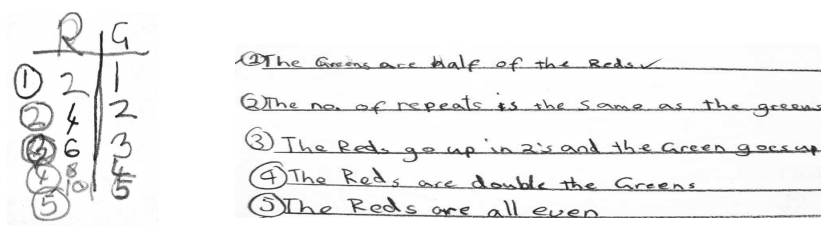 R G
① 2 1
② 4 2
③ 6 3
④ 8 4
⑤ 10 5
①The Greens are half of the Reds✓
②The no. of repeats is the same as the greens
③ The Reds go up in 2's and the Green goes up
④The Reds are double the Greens
⑤The Reds are all even